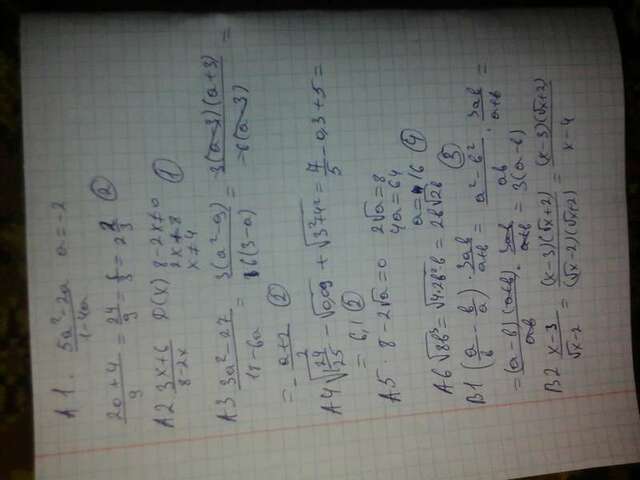 A1. (5a² - 2a)/(1 - 4a) a = -2
(20 + 4)/9 = 24/9 = 8/3 = 2 2/3 ②
A2 (3x + 6)/(8 - 2x) D(x) 8 - 2x ≠ 0
2x ≠ 8
x ≠ 4 ①
A3 (3a² - 27)/(18 - 6a) = 3(a² - 9)/6(3 - a) = 3(a - 3)(a + 3)/-6(a - 3) =
= - (a + 3)/2 ②
A4 √(24/25) - √0,09 + √(3² + 4²) = 7/5 - 0,3 + 5 =
= 6,1 ②
A5. 8 - 2√a = 0 2√a = 8
4a = 64
a = 16 ④
A6 √8b³ = √4·2b²b = 2b√2b ③
B1 (a/b - b/a) · 3ab/(a+b) = (a² - b²)/ab · 3ab/(a+b) =
= (a - b)(a+b)/ab · 3ab/(a+b) = 3(a - b)
B2 (x - 3)/(√x - 2) = (x - 3)(√x + 2)/(√x - 2)(√x + 2) = (x - 3)(√x + 2)/(x - 4)